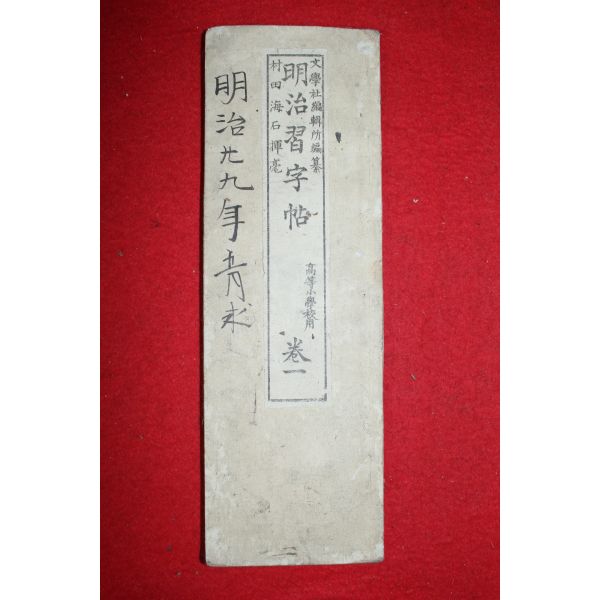 文學社編輯所編纂
明治習字帖
村田海石揮毫
高等小學校用
卷一
明治廿九年五月求